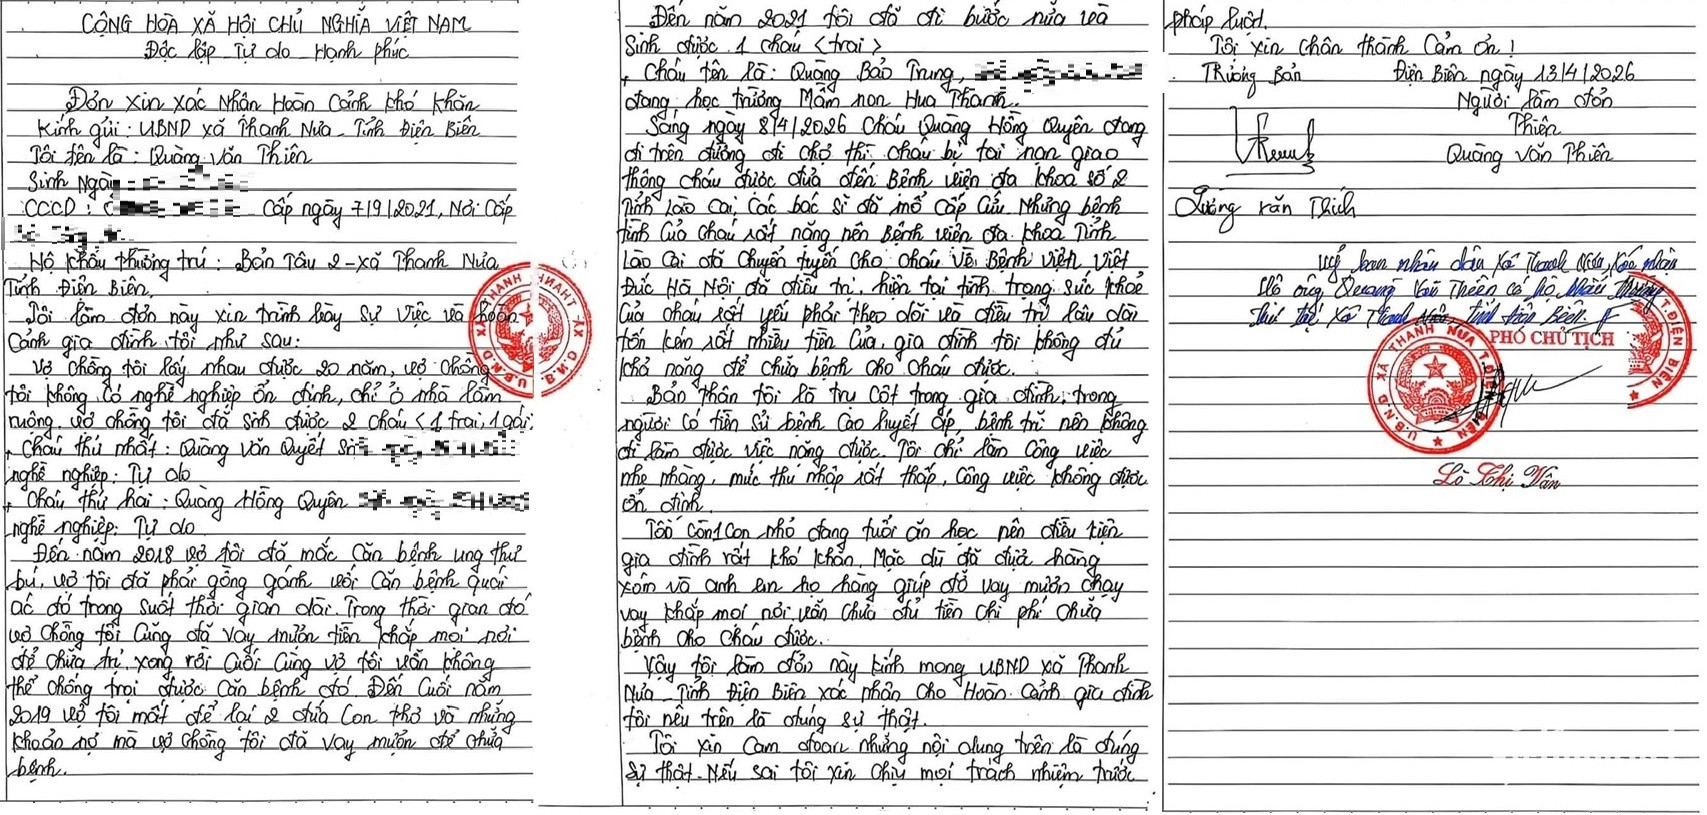 CỘNG HÒA XÃ HỘI CHỦ NGHĨA VIỆT NAM
Độc lập _ Tự do _ Hạnh phúc
Đơn xin xác Nhận Hoàn Cảnh khó khăn
Kính gửi : UBND xã Thanh Nưa _ Tỉnh Điện Biên
Tôi tên là : Quàng Văn Thiên
Sinh Ngày
CCCD : Cấp ngày 7/9/2021, Nơi Cấp
Hộ khẩu thường trú : Bản Tâu 2 - xã Thanh Nưa
Tỉnh Điện Biên,
Tôi làm đơn này xin trình bày sự việc và hoàn
Cảnh gia đình tôi như sau:
Vợ chồng tôi lấy nhau được 20 năm, vợ chồng
tôi không có nghề nghiệp ổn định, chỉ ở nhà làm
ruộng. vợ chồng tôi đã sinh được 2 cháu <1 trai, 1 gái.
+ Cháu thứ nhất : Quàng Văn Quyết
nghề nghiệp: Tự do
+ Cháu thứ hai : Quàng Hồng Quyên
nghề nghiệp: Tự do
Đến năm 2018 vợ tôi đã mắc căn bệnh ung thư
vú, vợ tôi đã phải gồng gánh với căn bệnh quái
ác đó trong suốt thời gian dài. Trong thời gian đó
vợ chồng tôi cũng đã vay mượn tiền khắp mọi nơi
để chữa trị, xong rồi cuối cùng vợ tôi vẫn không
thể chống trọi được căn bệnh đó. Đến cuối năm
2019 vợ tôi mất để lại 2 đứa con thơ và những
khoản nợ mà vợ chồng tôi đã vay mượn để chữa
bệnh.
Đến năm 2021 tôi đã đi bước nữa và
Sinh được 1 cháu <trai>
+ Cháu tên là : Quàng Bảo Trung,
đang học trường Mầm non Hua Thanh.
Sáng ngày 8/4/2026 cháu Quàng Hồng Quyên đang
đi trên đường đi chợ thì cháu bị tai nạn giao
thông cháu được đưa đến Bệnh viện đa khoa số 2
Tỉnh Lào Cai, các bác sĩ đã mổ cấp cứu. Nhưng bệnh
tình của cháu rất nặng nên Bệnh viện đa khoa Tỉnh
Lào Cai đã chuyển tuyến cho cháu về Bệnh viện Việt
Đức Hà Nội để điều trị, hiện tại tình trạng sức khoẻ
của cháu rất yếu phải theo dõi và điều trị lâu dài
tốn kém rất nhiều tiền của, gia đình tôi không đủ
khả năng để chữa bệnh cho cháu được.
Bản thân tôi là trụ cột trong gia đình, trong
người có tiền sử bệnh cao huyết áp, bệnh trĩ nên không
đi làm được việc nặng được. Tôi chỉ làm công việc
nhẹ nhàng, mức thu nhập rất thấp, công việc không được
ổn định.
Tôi còn 1 con nhỏ đang tuổi ăn học nên điều kiện
gia đình rất khó khăn. Mặc dù đã được hàng
xóm và anh em họ hàng giúp đỡ vay mượn chạy
vạy khắp mọi nơi vẫn chưa đủ tiền chi phí chữa
bệnh cho cháu được.
Vậy tôi làm đơn này kính mong UBND xã Thanh
Nưa _ Tỉnh Điện Biên xác nhận cho Hoàn cảnh gia đình
tôi nêu trên là đúng sự thật.
Tôi xin cam đoan những nội dung trên là đúng
sự thật. Nếu sai tôi xin chịu mọi trách nhiệm trước
pháp luật.
Tôi xin chân thành cảm ơn !
Trưởng Bản Điện Biên ngày 13/4/2026
Người làm đơn
Thiên
Quàng Văn Thiên
Quàng văn Thích
Uỷ ban nhân dân xã Thanh Nưa, xác nhận
ông Quàng Văn Thiên có hộ khẩu thường
trú tại xã Thanh Nưa, tỉnh Điện Biên
PHÓ CHỦ TỊCH
U.B.N.D XÃ THANH NƯA T.ĐIỆN BIÊN
Lò Thị Vân